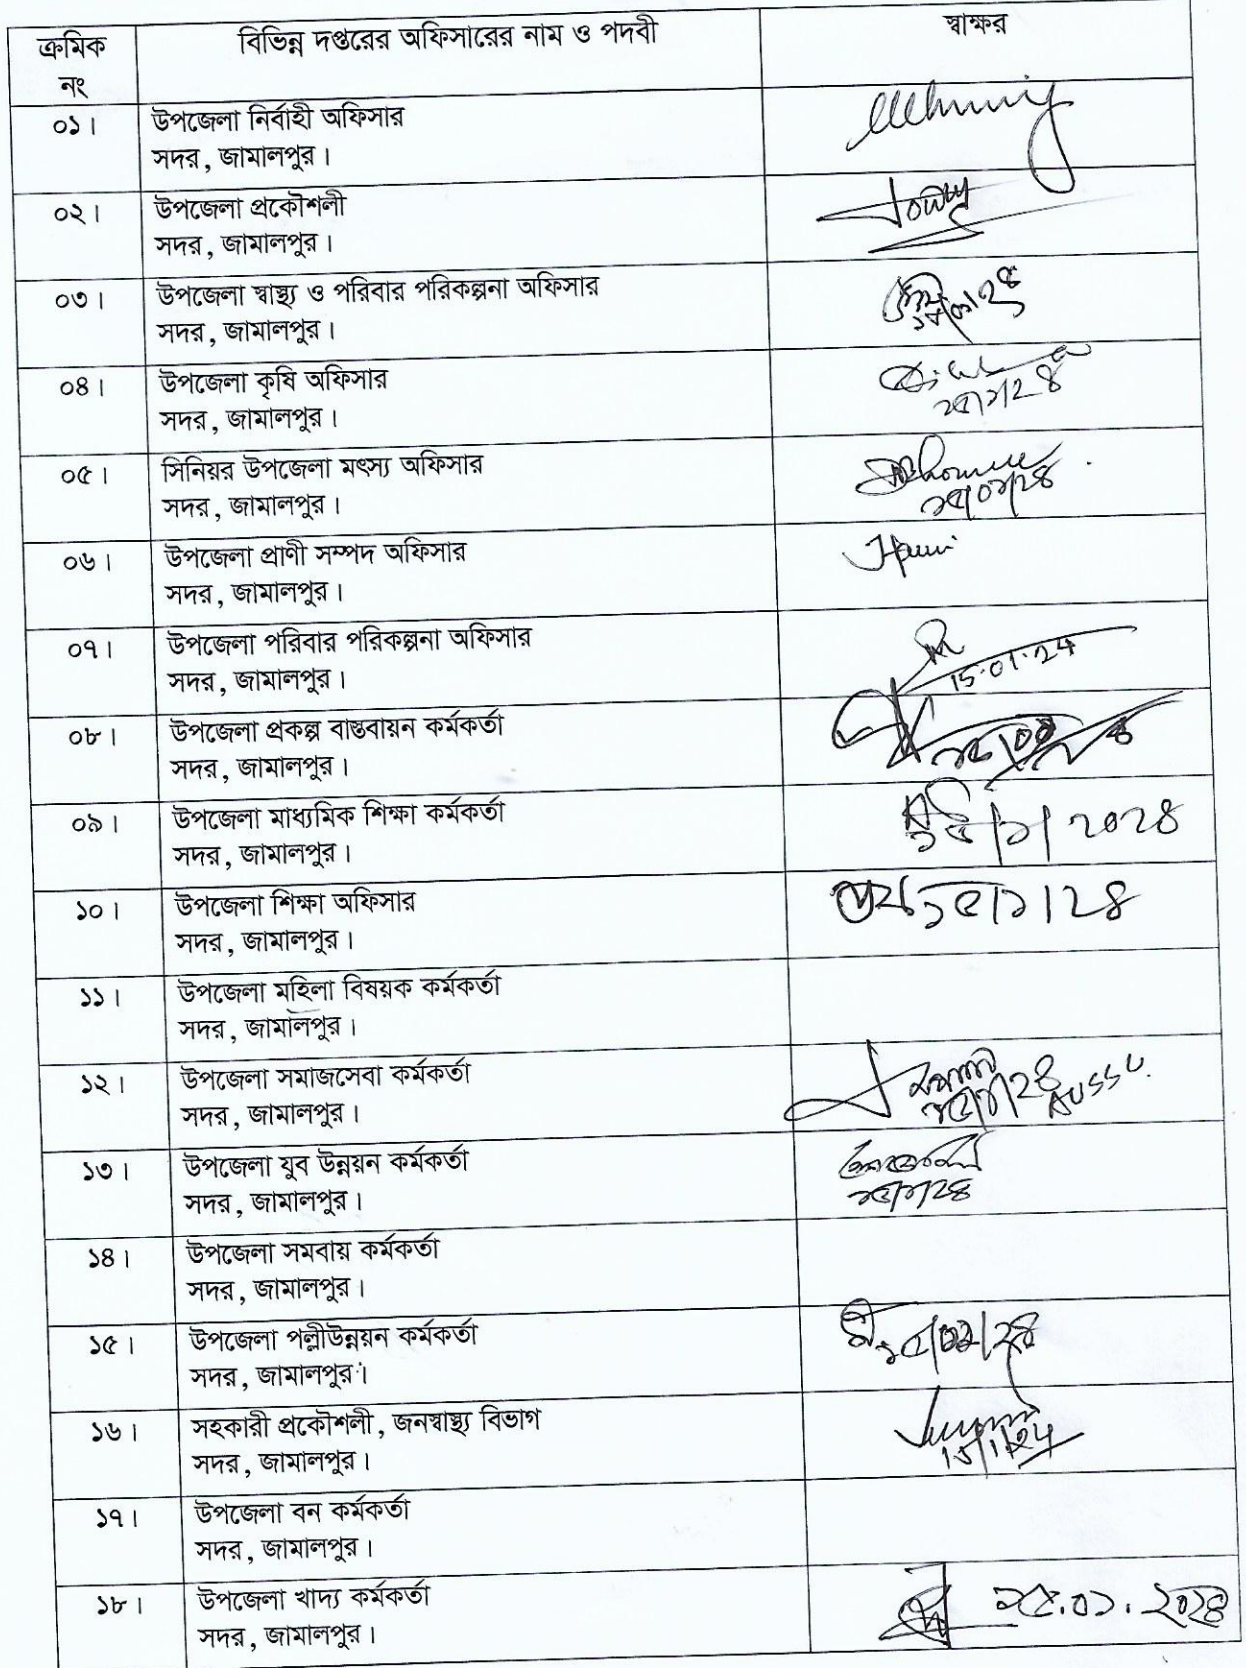 ক্রমিক নং বিভিন্ন দপ্তরের অফিসারের নাম ও পদবী স্বাক্ষর
০১। উপজেলা নির্বাহী অফিসার
সদর, জামালপুর।
০২। উপজেলা প্রকৌশলী
সদর, জামালপুর।
০৩। উপজেলা স্বাস্থ্য ও পরিবার পরিকল্পনা অফিসার
সদর, জামালপুর।
০৪। উপজেলা কৃষি অফিসার
সদর, জামালপুর।
১৫/১/২৪
০৫। সিনিয়র উপজেলা মৎস্য অফিসার
সদর, জামালপুর।
১৫/০১/২৪
০৬। উপজেলা প্রাণী সম্পদ অফিসার
সদর, জামালপুর।
০৭। উপজেলা পরিবার পরিকল্পনা অফিসার
সদর, জামালপুর।
15.01.24
০৮। উপজেলা প্রকল্প বাস্তবায়ন কর্মকর্তা
সদর, জামালপুর।
০৯। উপজেলা মাধ্যমিক শিক্ষা কর্মকর্তা
সদর, জামালপুর।
১৫/১/২০২৪
১০। উপজেলা শিক্ষা অফিসার
সদর, জামালপুর।
১৫/১/২৪
১১। উপজেলা মহিলা বিষয়ক কর্মকর্তা
সদর, জামালপুর।
১২। উপজেলা সমাজসেবা কর্মকর্তা
সদর, জামালপুর।
১৫/১/২৪
১৩। উপজেলা যুব উন্নয়ন কর্মকর্তা
সদর, জামালপুর।
১৫/১/২৪
১৪। উপজেলা সমবায় কর্মকর্তা
সদর, জামালপুর।
১৫। উপজেলা পল্লীউন্নয়ন কর্মকর্তা
সদর, জামালপুর।
১৫/০১/২৪
১৬। সহকারী প্রকৌশলী, জনস্বাস্থ্য বিভাগ
সদর, জামালপুর।
15/1/24
১৭। উপজেলা বন কর্মকর্তা
সদর, জামালপুর।
১৮। উপজেলা খাদ্য কর্মকর্তা
সদর, জামালপুর।
১৫.০১.২০২৪